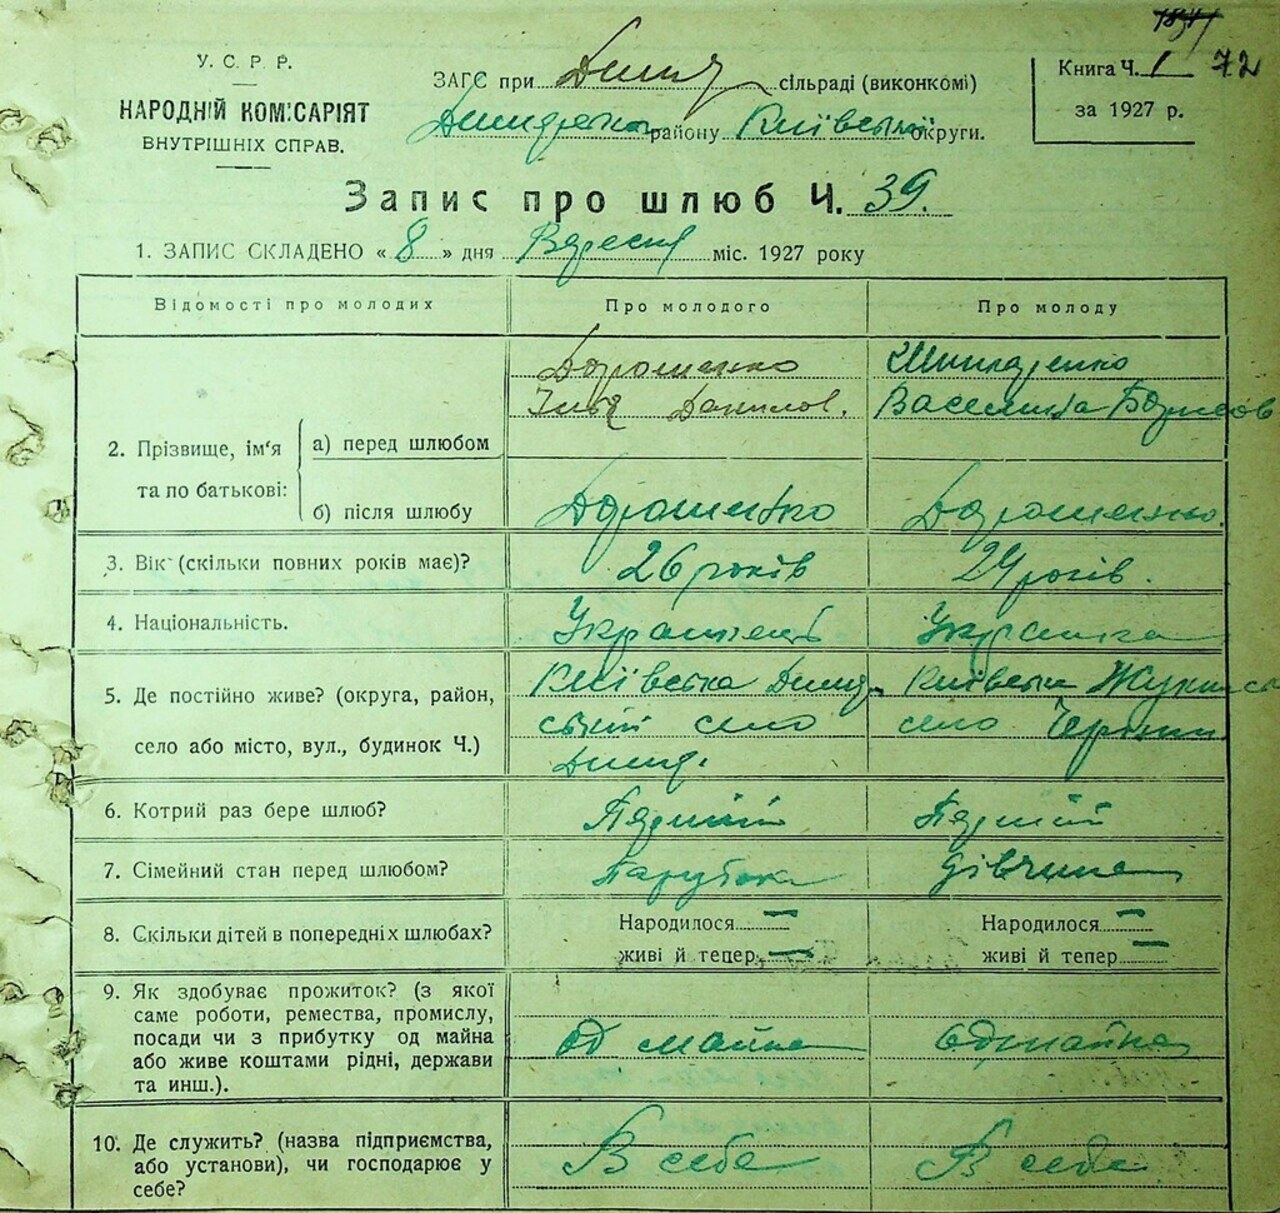 72
У. С. Р. Р.
НАРОДНІЙ КОМІСАРІЯТ
ВНУТРІШНІХ СПРАВ.
ЗАГС при Димер сільраді (виконкомі)
району Київської округи.
Книга Ч. 1
за 1927 р.
Запис про шлюб Ч. 39.
1. ЗАПИС СКЛАДЕНО « 8 » дня Вересня міс. 1927 року
Відомості про молодих Про молодого Про молоду
Дорошенко
Ілья Данилов.
Василина Борисов
2. Прізвище, ім'я
та по батькові:
а) перед шлюбом
б) після шлюбу
Дорошенко Дорошенко.
3. Вік (скільки повних років має)? 26 років 24 років.
4. Національність. Українець Українка
5. Де постійно живе? (округа, район,
село або місто, вул., будинок Ч.)
Київська Димер
ський село
Димер.
Київська Жукинсь
село
6. Котрий раз бере шлюб? Первий Первий
7. Сімейний стан перед шлюбом? Парубок дівчина
8. Скільки дітей в попередніх шлюбах? Народилося — Народилося —
живі й тепер — живі й тепер —
9. Як здобуває прожиток? (з якої
саме роботи, ремества, промислу,
посади чи з прибутку од майна
або живе коштами рідні, держави
та инш.).
од майна од майна
10. Де служить? (назва підприємства,
або установи), чи господарює у
себе?
В себе В себе